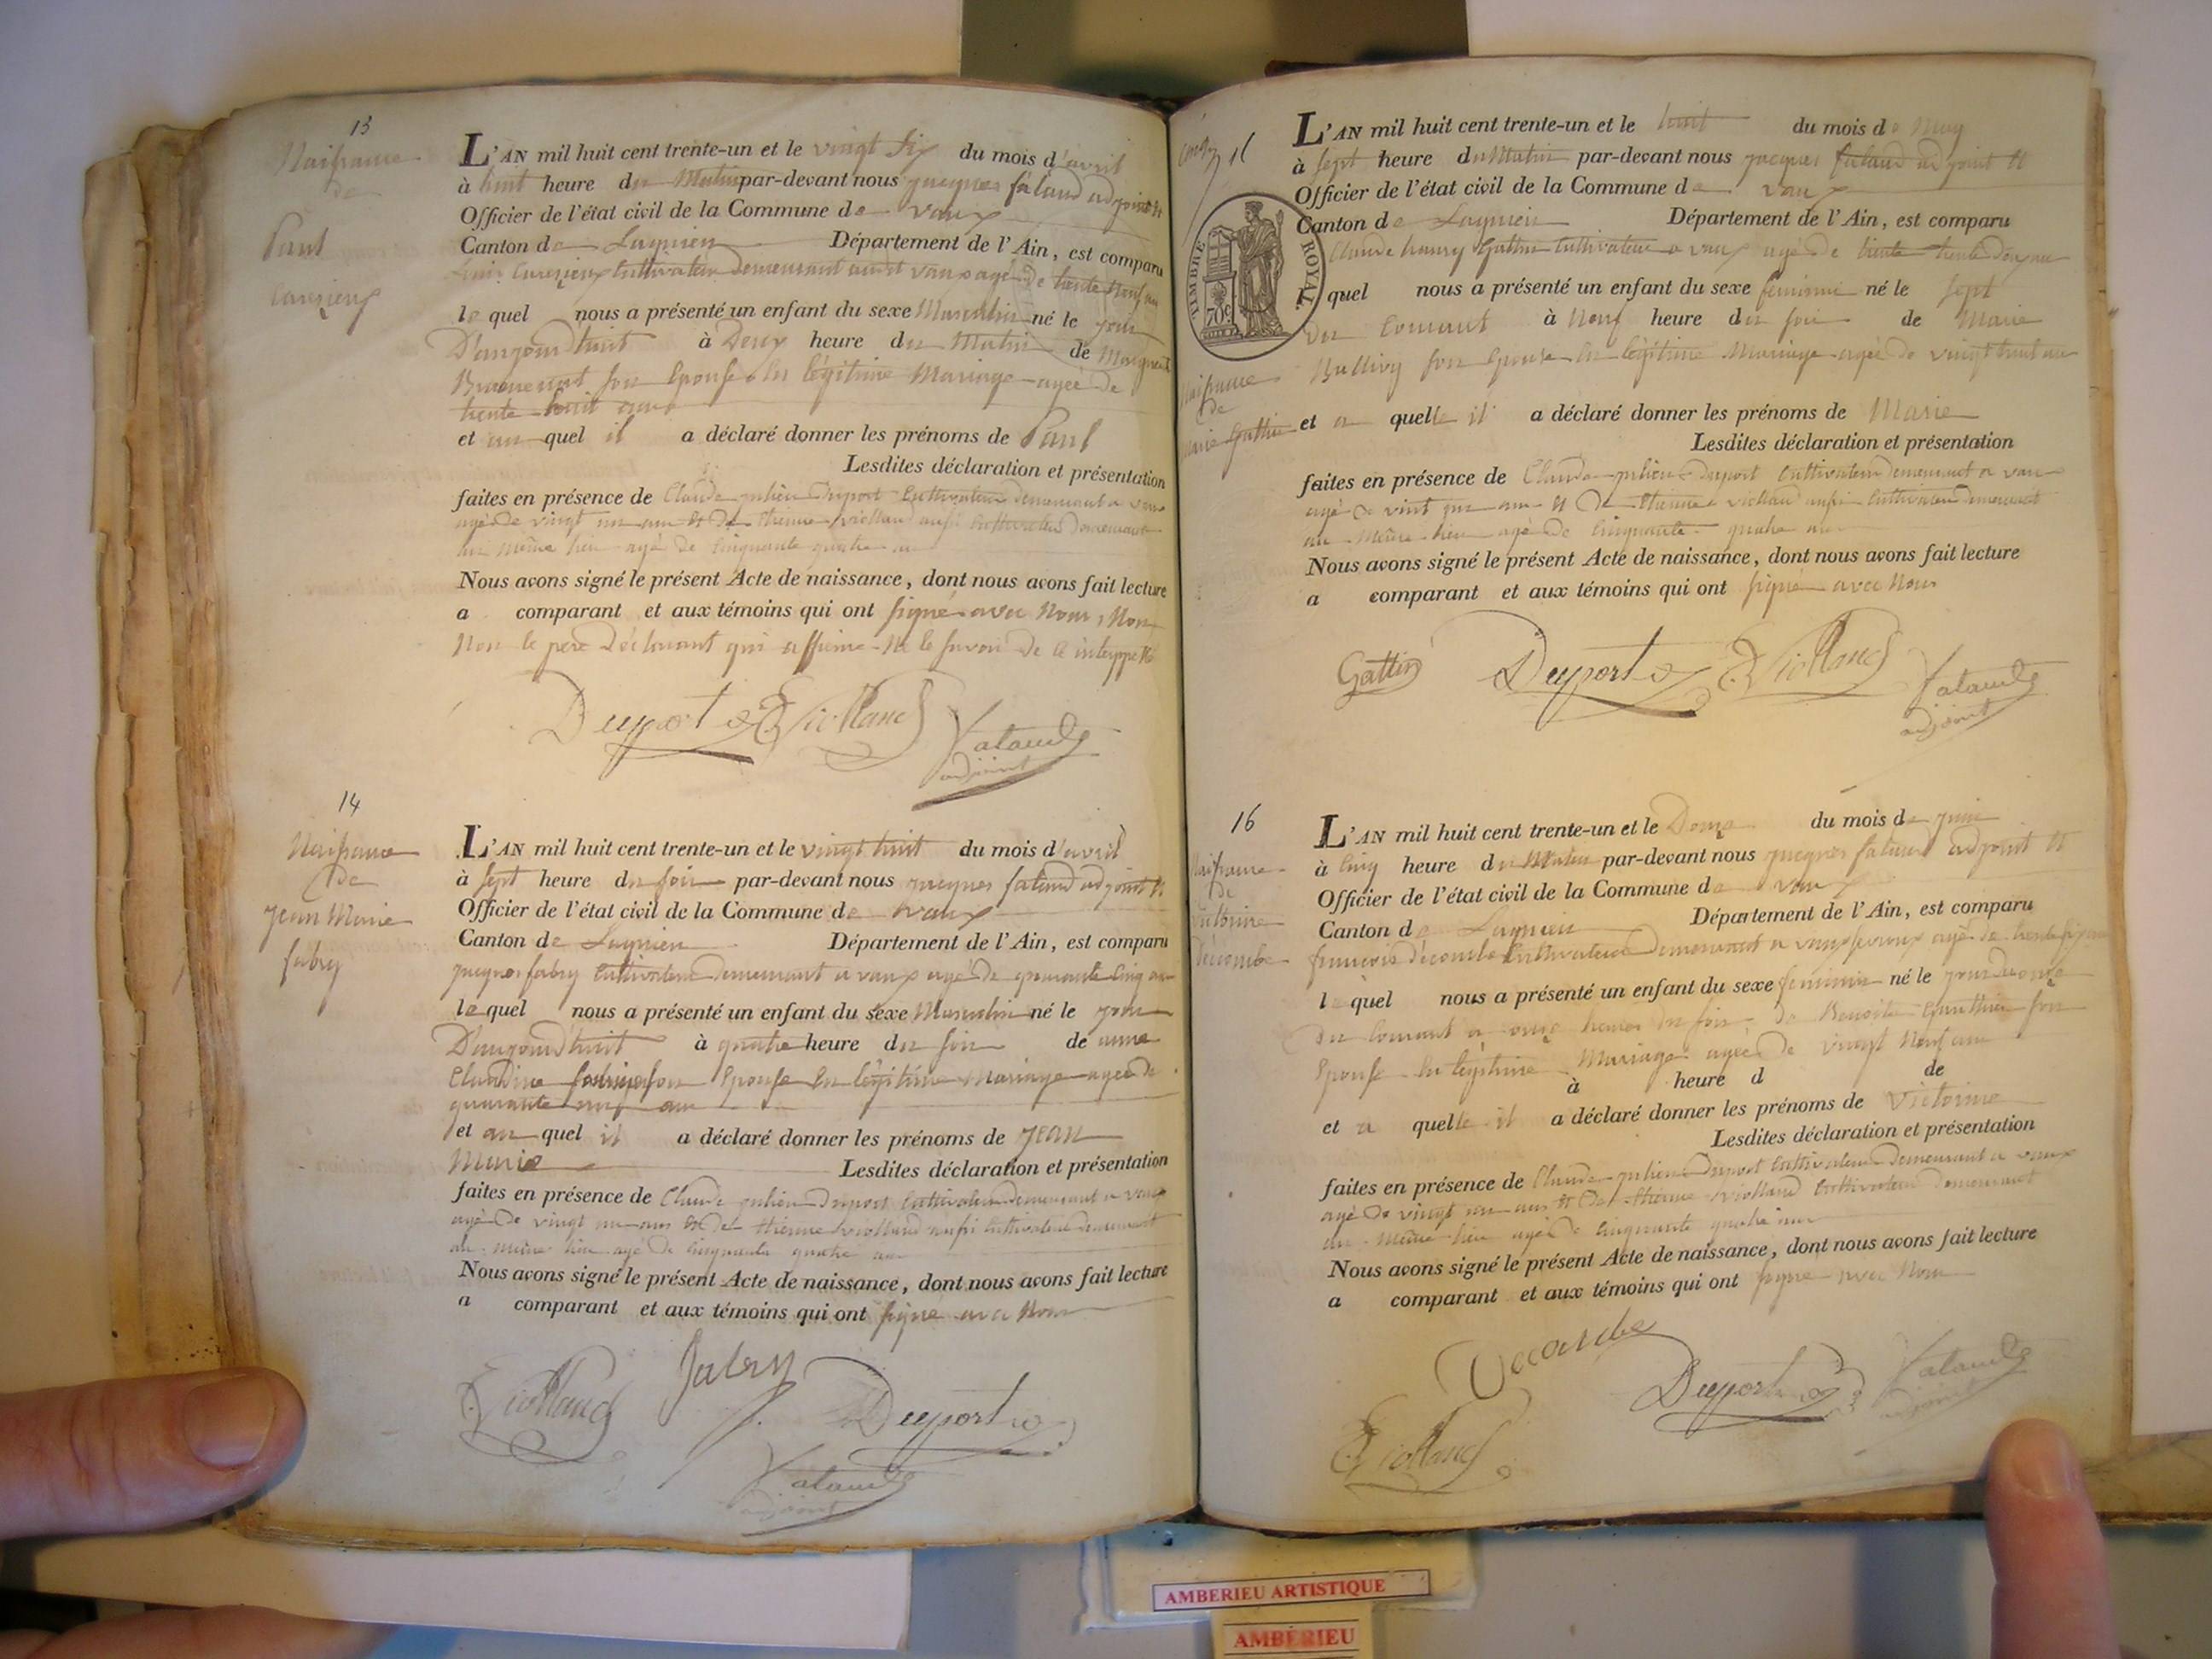 13
Naissance
de
Paul
L'AN mil huit cent trente-un et le vingt six du mois d'avril
à huit heure du Matin par-devant nous jacques falaud adjoint et
Officier de l'état civil de la Commune de vaux
Canton de Lagnieu Département de l'Ain, est comparu
Cultivateur demeurant audit vaux agé de trente neuf ans
le quel nous a présenté un enfant du sexe Masculin né le jour
D'aujourd'huit à Deux heure du Matin de
son Epouse En légitime Mariage agée de
trente huit ans
et au quel il a déclaré donner les prénoms de Paul
Lesdites déclaration et présentation
faites en présence de Claude julien Duport Cultivateur demeurant a vaux
agé de vingt un ans et de Etienne violland aussi Cultivateur demeurant
au même lieu agé de Cinquante quatre ans
Nous avons signé le présent Acte de naissance, dont nous avons fait lecture
a comparant et aux témoins qui ont signé avec Nous, Non
Non le père Déclarant qui affirme Ne le savoir de ce
Duport
E Violland
falaud
adjoint
14
Naissance
de
jean Marie
fabry
L'AN mil huit cent trente-un et le vingt huit du mois d'avril
à sept heure du soir par-devant nous jacques falaud adjoint et
Officier de l'état civil de la Commune de vaux
Canton de Lagnieu Département de l'Ain, est comparu
jacques fabry Cultivateur demeurant a vaux agé de quarante Cinq ans
le quel nous a présenté un enfant du sexe Masculin né le jour
D'aujourd'huit à quatre heure du soir de anne
Claudine son Epouse En légitime Mariage agée de
quarante ans
et au quel il a déclaré donner les prénoms de jean
Marie Lesdites déclaration et présentation
faites en présence de Claude julien Duport Cultivateur demeurant a vaux
agé de vingt un ans et de Etienne violland aussi Cultivateur demeurant
au même lieu agé de Cinquante quatre ans
Nous avons signé le présent Acte de naissance, dont nous avons fait lecture
a comparant et aux témoins qui ont signé avec Nous
E Violland
fabry
Duport
falaud
adjoint
TIMBRE ROYAL
70c
Naissance
de
marie Gattin
L'AN mil huit cent trente-un et le huit du mois de May
à sept heure du Matin par-devant nous jacques falaud adjoint et
Officier de l'état civil de la Commune de vaux
Canton de Lagnieu Département de l'Ain, est comparu
Claude Gattin Cultivateur a vaux agé de trente trente deux ans
l quel nous a présenté un enfant du sexe feminin né le sept
du Courant à Neuf heure du soir de Marie
son Epouse En légitime Mariage agée de vingt huit ans
et a quelle il a déclaré donner les prénoms de Marie
Lesdites déclaration et présentation
faites en présence de Claude julien Duport Cultivateur demeurant a vaux
agé de vint un ans et de Etienne violland aussi Cultivateur demeurant
au même lieu agé de Cinquante quatre ans
Nous avons signé le présent Acte de naissance, dont nous avons fait lecture
a comparant et aux témoins qui ont signé avec Nous
Gattin
Duport
E Violland
falaud
adjoint
16
Naissance
de
Victorine
Décombe
L'AN mil huit cent trente-un et le Douze du mois de juin
à Cinq heure du Matin par-devant nous jacques falaud adjoint et
Officier de l'état civil de la Commune de vaux
Canton de Lagnieu Département de l'Ain, est comparu
francois Décombe Cultivateur demeurant a vaux agé de trente
le quel nous a présenté un enfant du sexe feminin né le jour du onze
du Courant a onze heures du soir de Benoite Gauthier son
Epouse En légitime Mariage agée de vingt Neuf ans
à heure d de
et a quelle il a déclaré donner les prénoms de Victorine
Lesdites déclaration et présentation
faites en présence de Claude julien Duport Cultivateur demeurant a vaux
agé de vingt un ans et de Etienne violland Cultivateur demeurant
au même lieu agé de Cinquante quatre ans
Nous avons signé le présent Acte de naissance, dont nous avons fait lecture
a comparant et aux témoins qui ont signé avec Nous
Decombe
Duport
falaud
adjoint
E Violland
AMBERIEU ARTISTIQUE
AMBERIEU